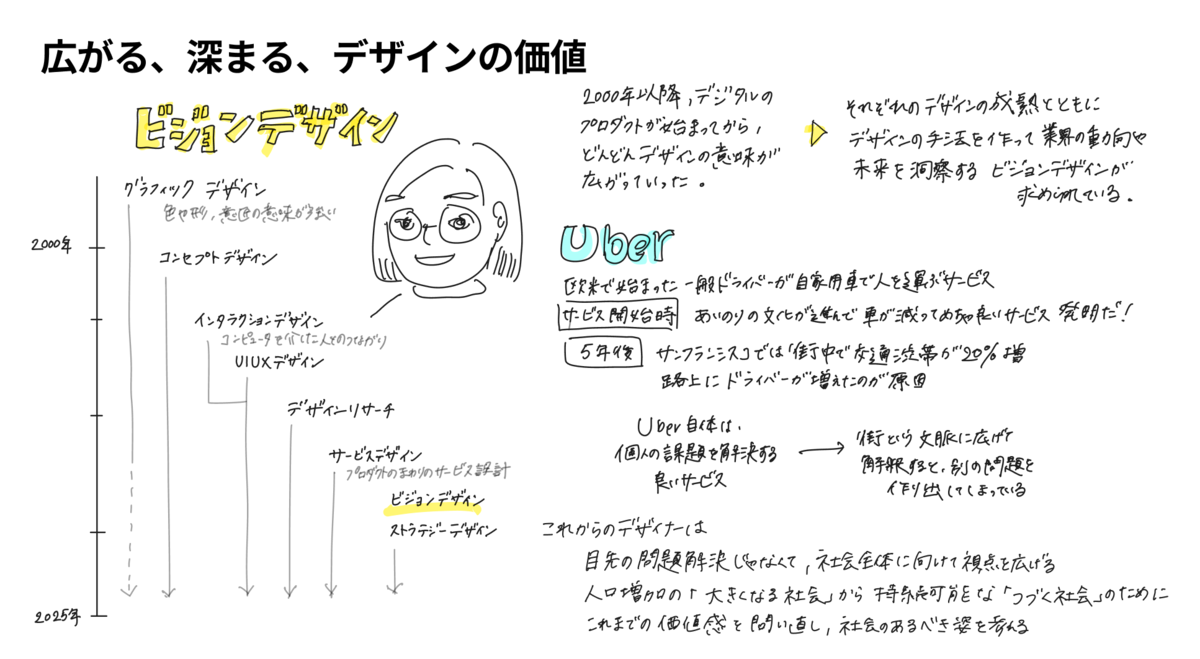 広がる、深まる、デザインの価値
ビジョンデザイン
グラフィック デザイン
色や形、意匠の意味が強い
2000年
コンセプトデザイン
インタラクションデザイン
コンピュータを介した人とのつながり
UIUXデザイン
デザインリサーチ
サービスデザイン
プロダクトのまわりのサービス設計
ビジョンデザイン
ストラテジーデザイン
2025年
2000年以降、デジタルの
プロダクトが始まってから、
どんどんデザインの意味が
広がっていった。
それぞれのデザインの成熟とともに
デザインの手法を作って業界の動向や
未来を洞察する ビジョンデザインが
求められている。
Uber
欧米で始まった一般ドライバーが自家用車で人を運ぶサービス
サービス開始時 あいのりの文化が進んで車が減ってめちゃ良いサービス 発明だ!
5年後 サンフランシスコでは街中で交通渋滞が20%増
路上にドライバーが増えたのが原因
Uber自体は、
個人の課題を解決する
良いサービス
街という文脈に広げて
解釈すると、別の問題を
作り出してしまっている
これからのデザイナーは
目先の問題解決じゃなくて、社会全体に向けて視点を広げる
人口増加の「大きくなる社会」から 持続可能な「つづく社会」のために
これまでの価値感を問い直し、社会のあるべき姿を考える